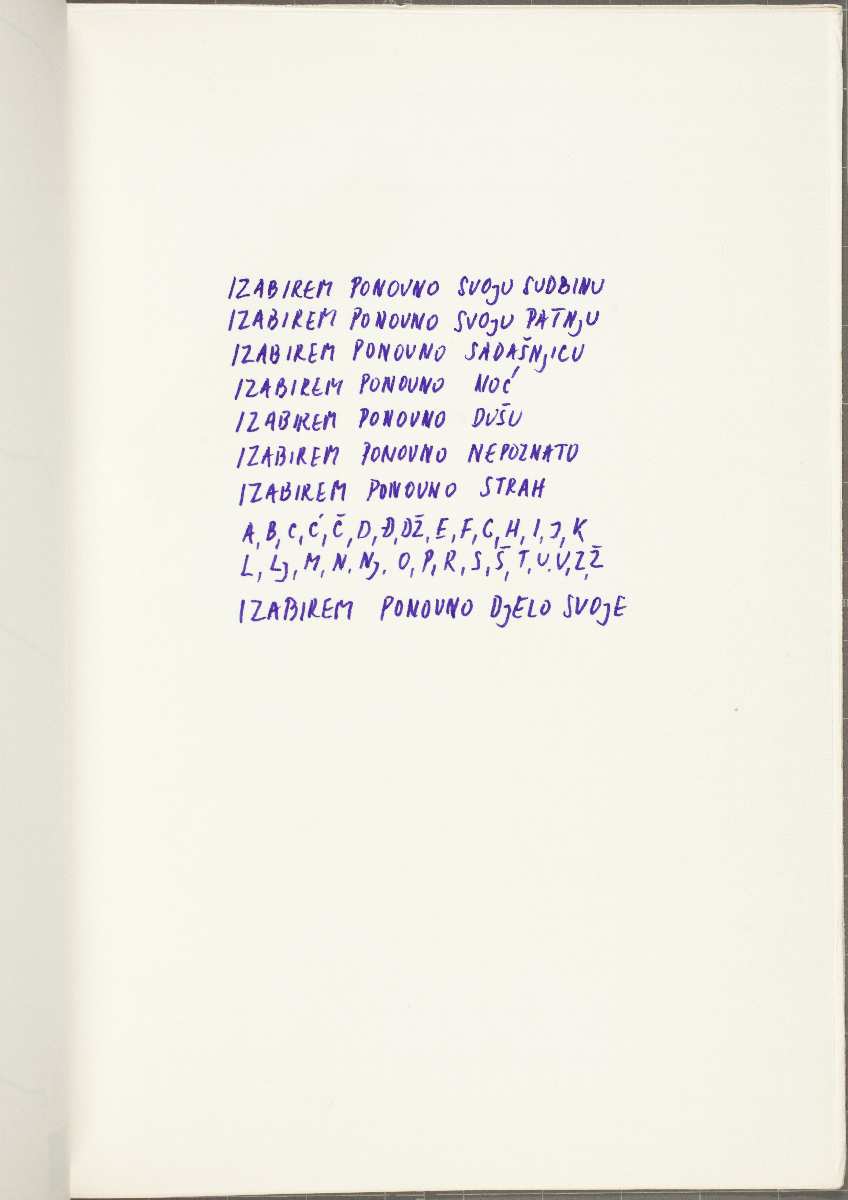 IZABIREM PONOVNO SVOJU SUDBINU
IZABIREM PONOVNO SVOJU PATNJU
IZABIREM PONOVNO SADAŠNJICU
IZABIREM PONOVNO NOĆ
IZABIREM PONOVNO DUŠU
IZABIREM PONOVNO NEPOZNATO
IZABIREM PONOVNO STRAH
A, B, C, Ć, Č, D, Đ, DŽ, E, F, G, H, I, J, K
L, LJ, M, N, NJ, O, P, R, S, Š, T, U, V, Z, Ž
IZABIREM PONOVNO DJELO SVOJE